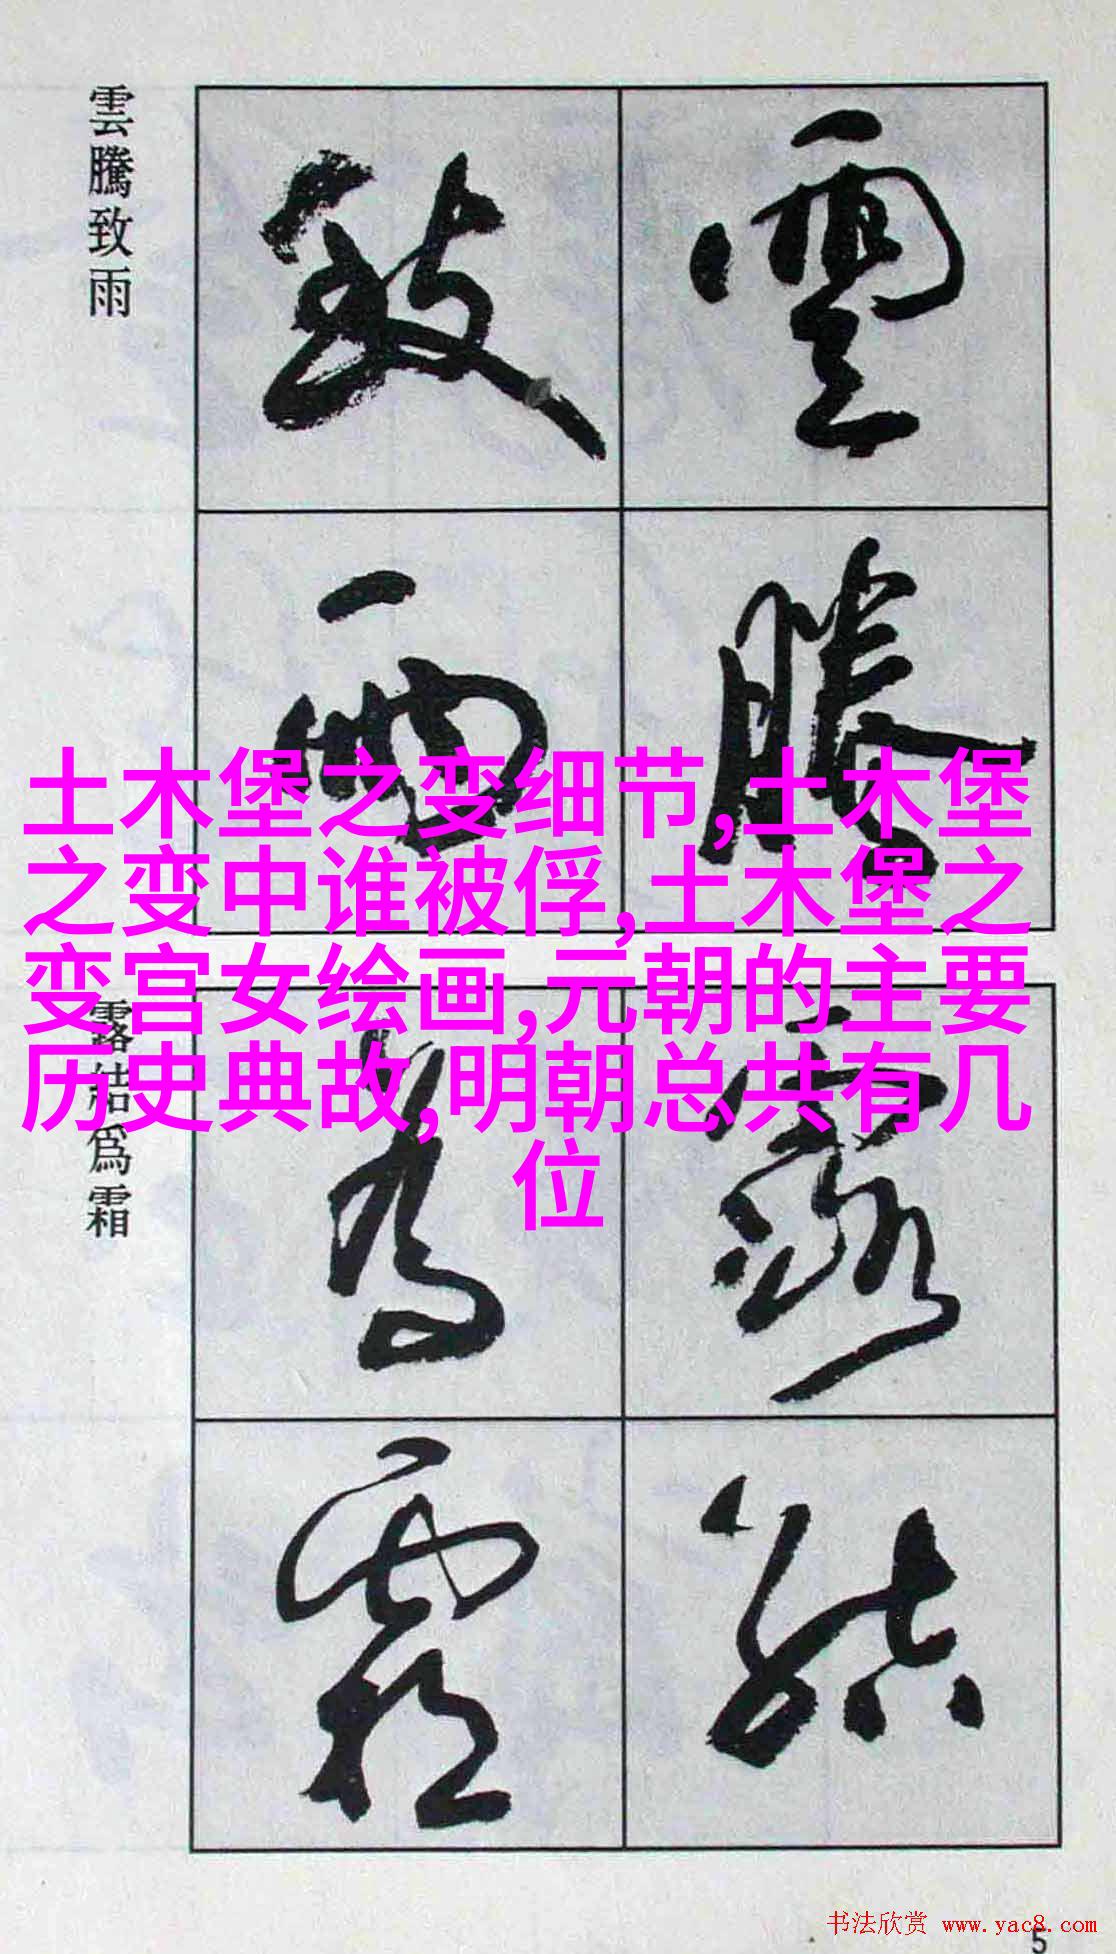 雲騰致雨
雲騰
致雨
土木堡之变细节,土木堡
之变中谁被俘,土木堡之
变宫女绘画,元朝的主要
历史典故,明朝总共有几
位
露結為霜
露結
為霜
书法欣赏 www.yac8.com
5